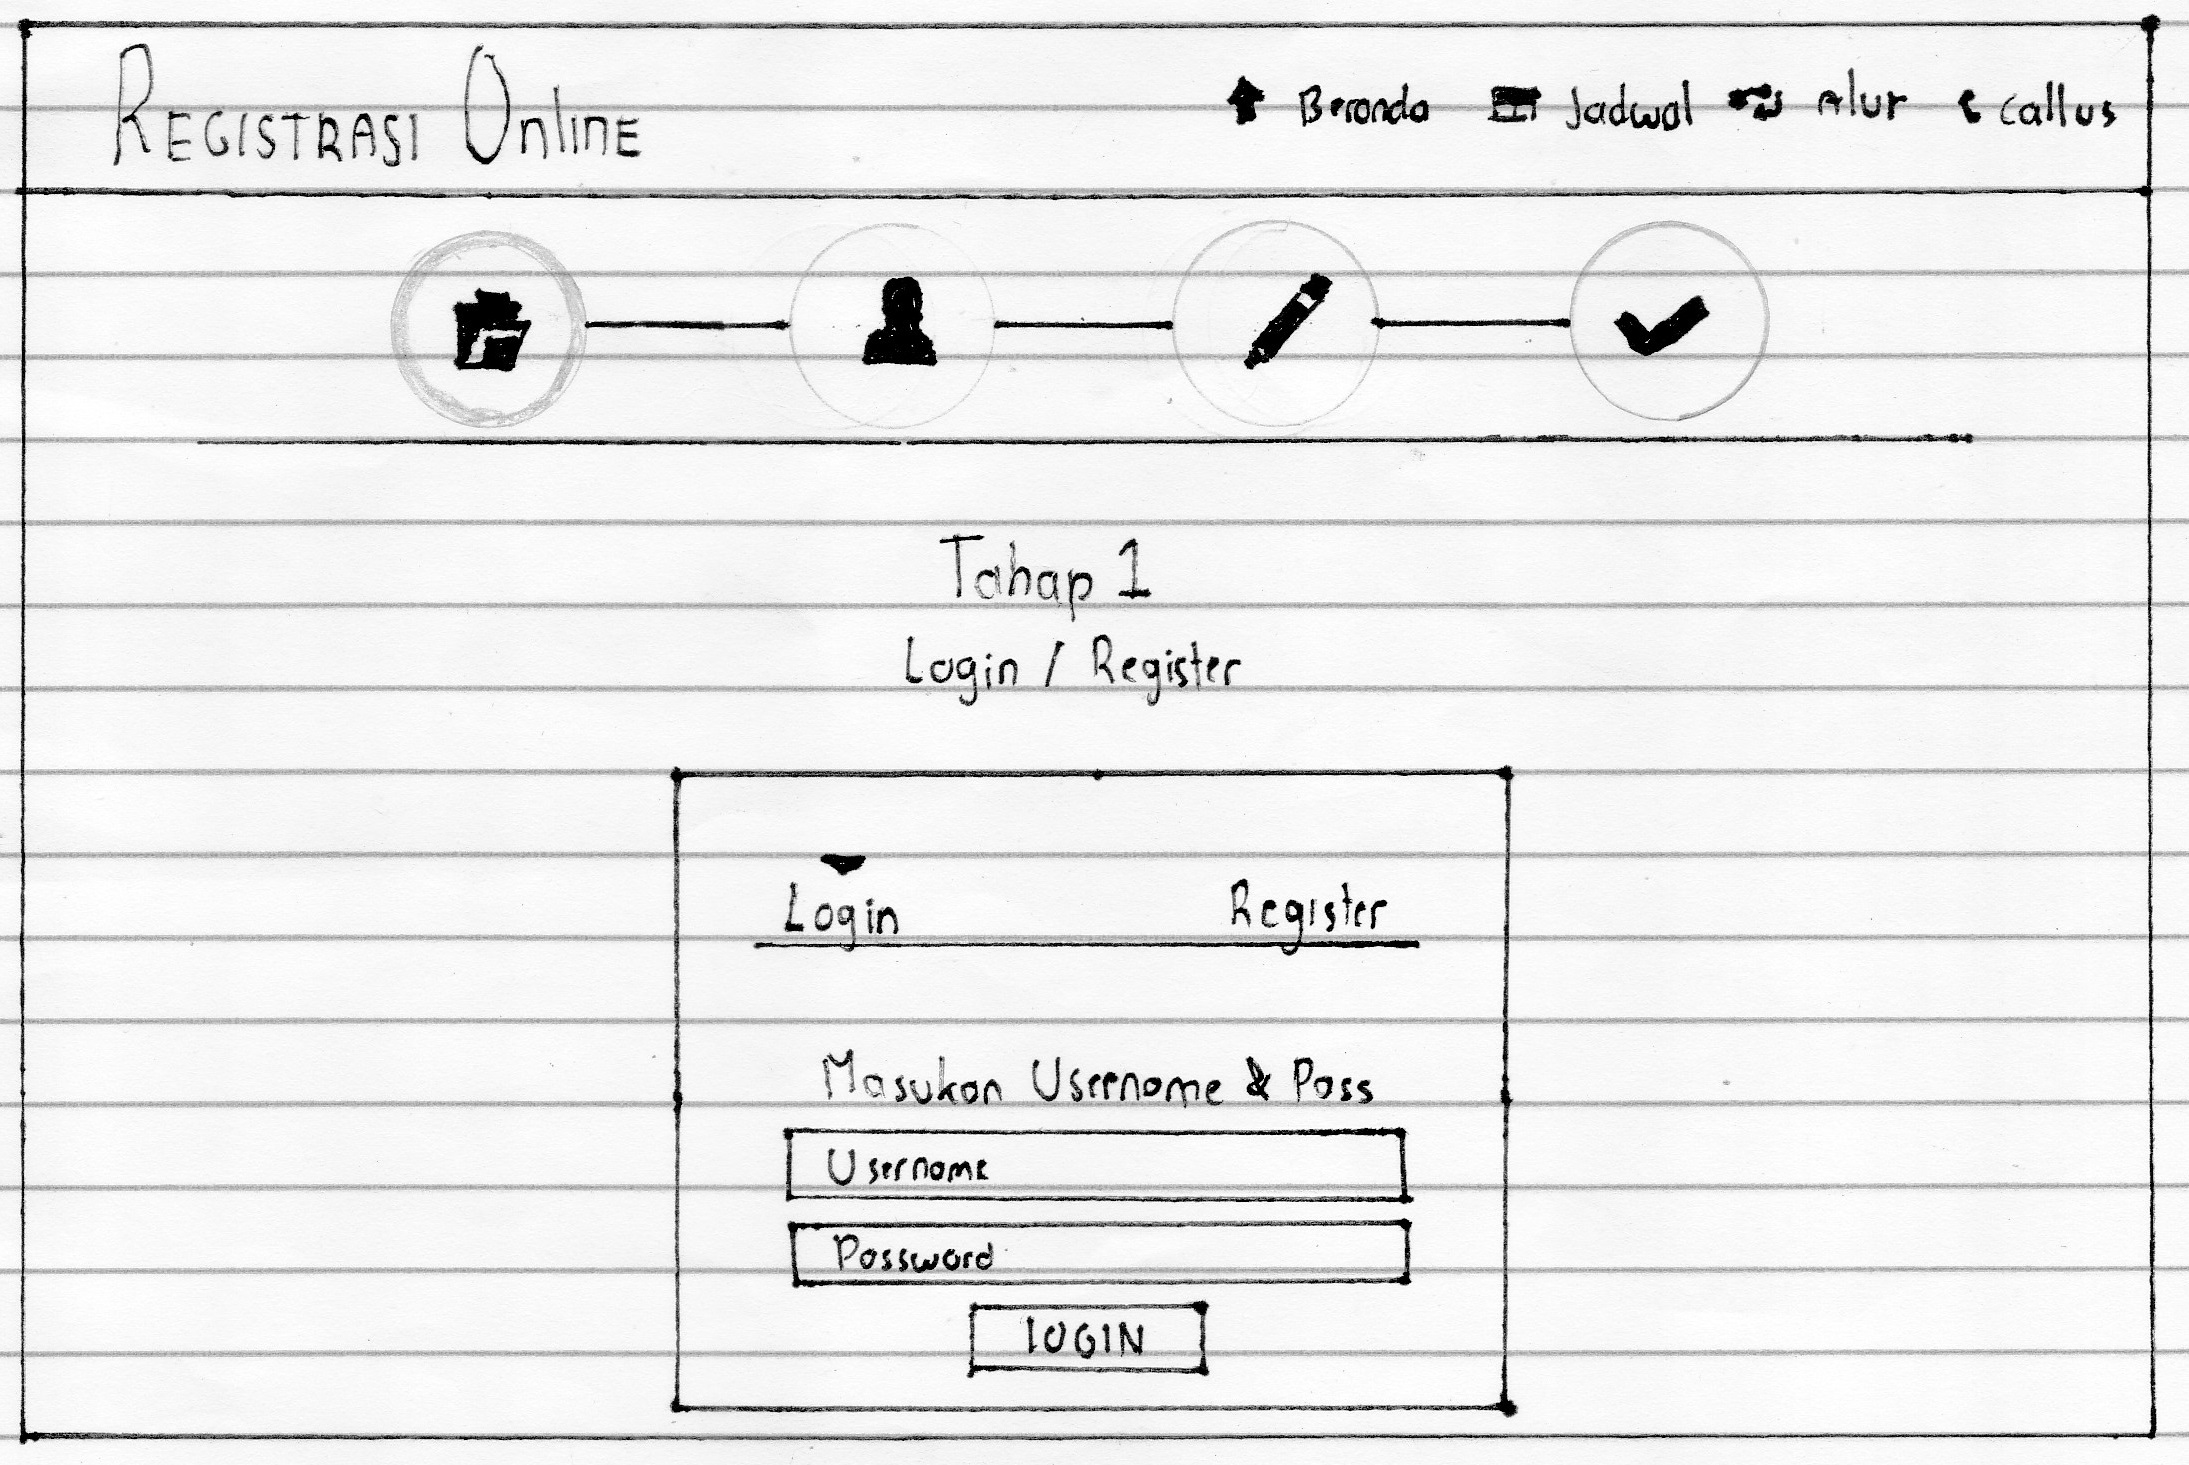 REGISTRASI OnlinE
Beranda Jadwal Alur Call us
Tahap 1
Login / Register
Login Register
Masukan Username & Pass
Username
Password
LOGIN